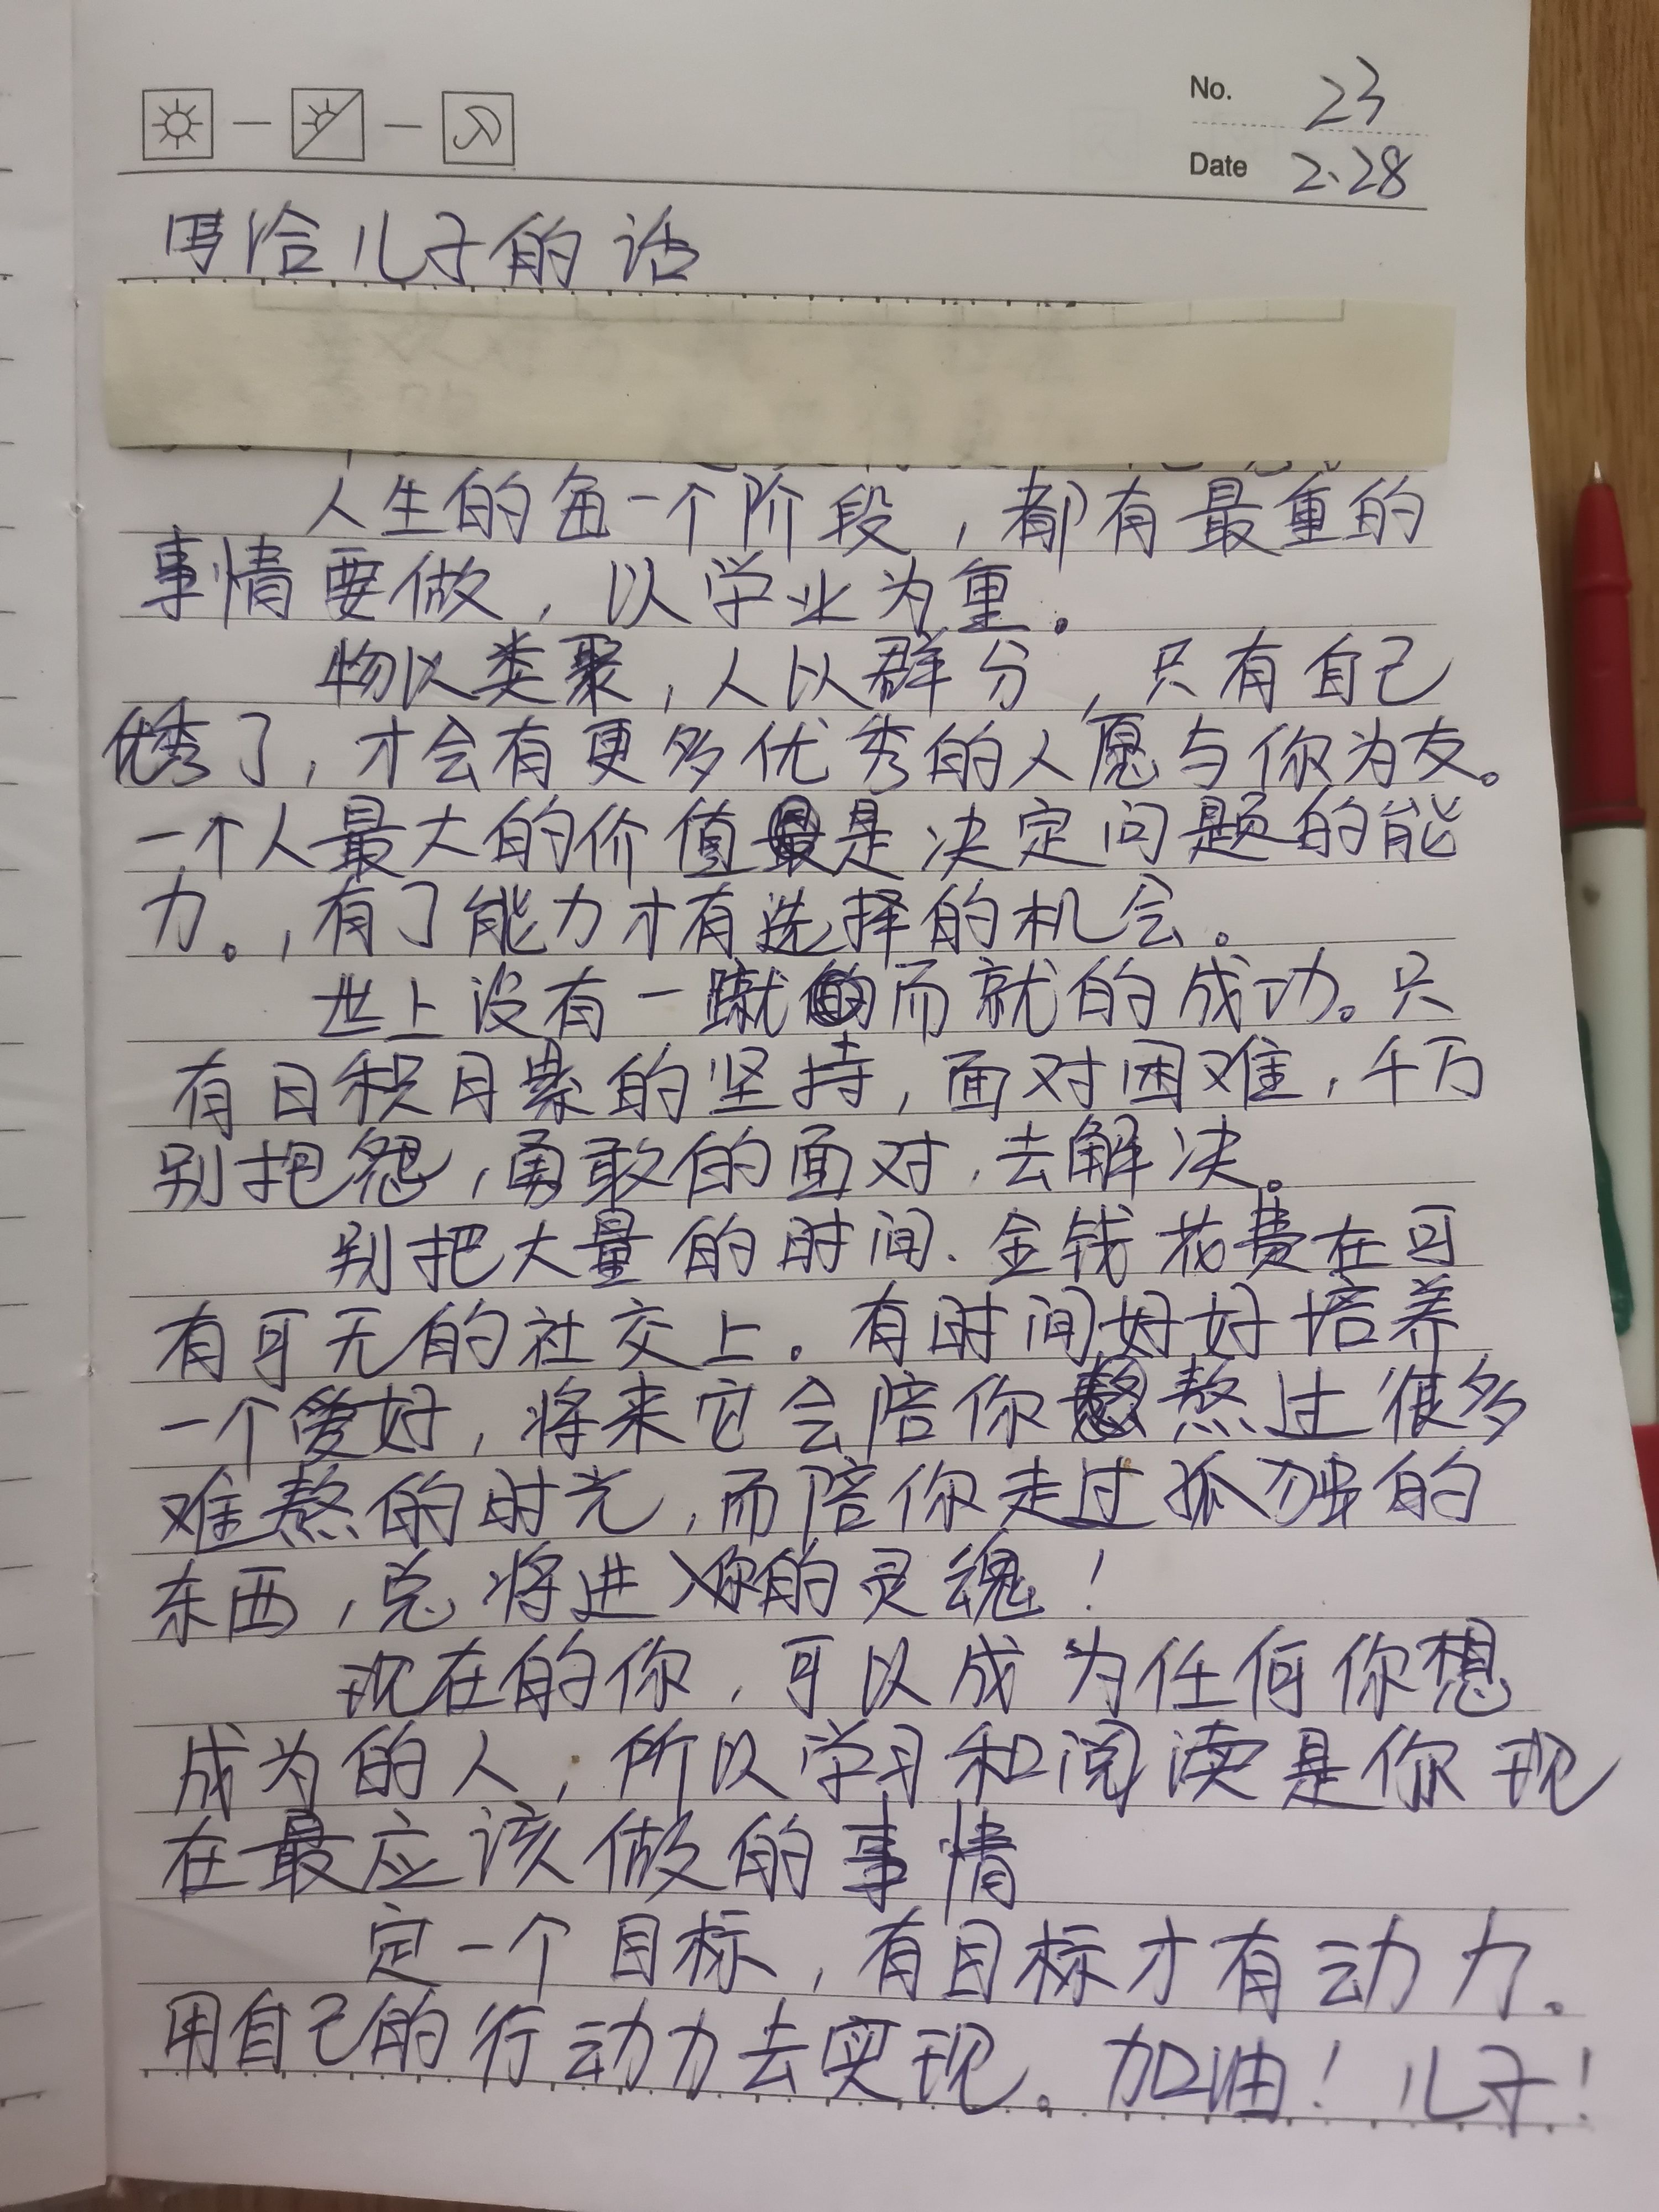 No. 23
Date 2.28
写给儿子的话
人生的每一个阶段，都有最重的
事情要做，以学业为重。
物以类聚，人以群分，只有自己
优秀了，才会有更多优秀的人愿与你为友。
一个人最大的价值是决定问题的能
力。，有了能力才有选择的机会。
世上没有一蹴而就的成功。只
有日积月累的坚持，面对困难，千万
别抱怨，勇敢的面对，去解决。
别把大量的时间、金钱花费在可
有可无的社交上。有时间好好培养
一个爱好，将来它会陪你熬过很多
难熬的时光，而陪你走过孤独的
东西，总将进入你的灵魂！
现在的你，可以成为任何你想
成为的人，所以学习和阅读是你现
在最应该做的事情
定一个目标，有目标才有动力。
用自己的行动力去实现。加油！儿子！